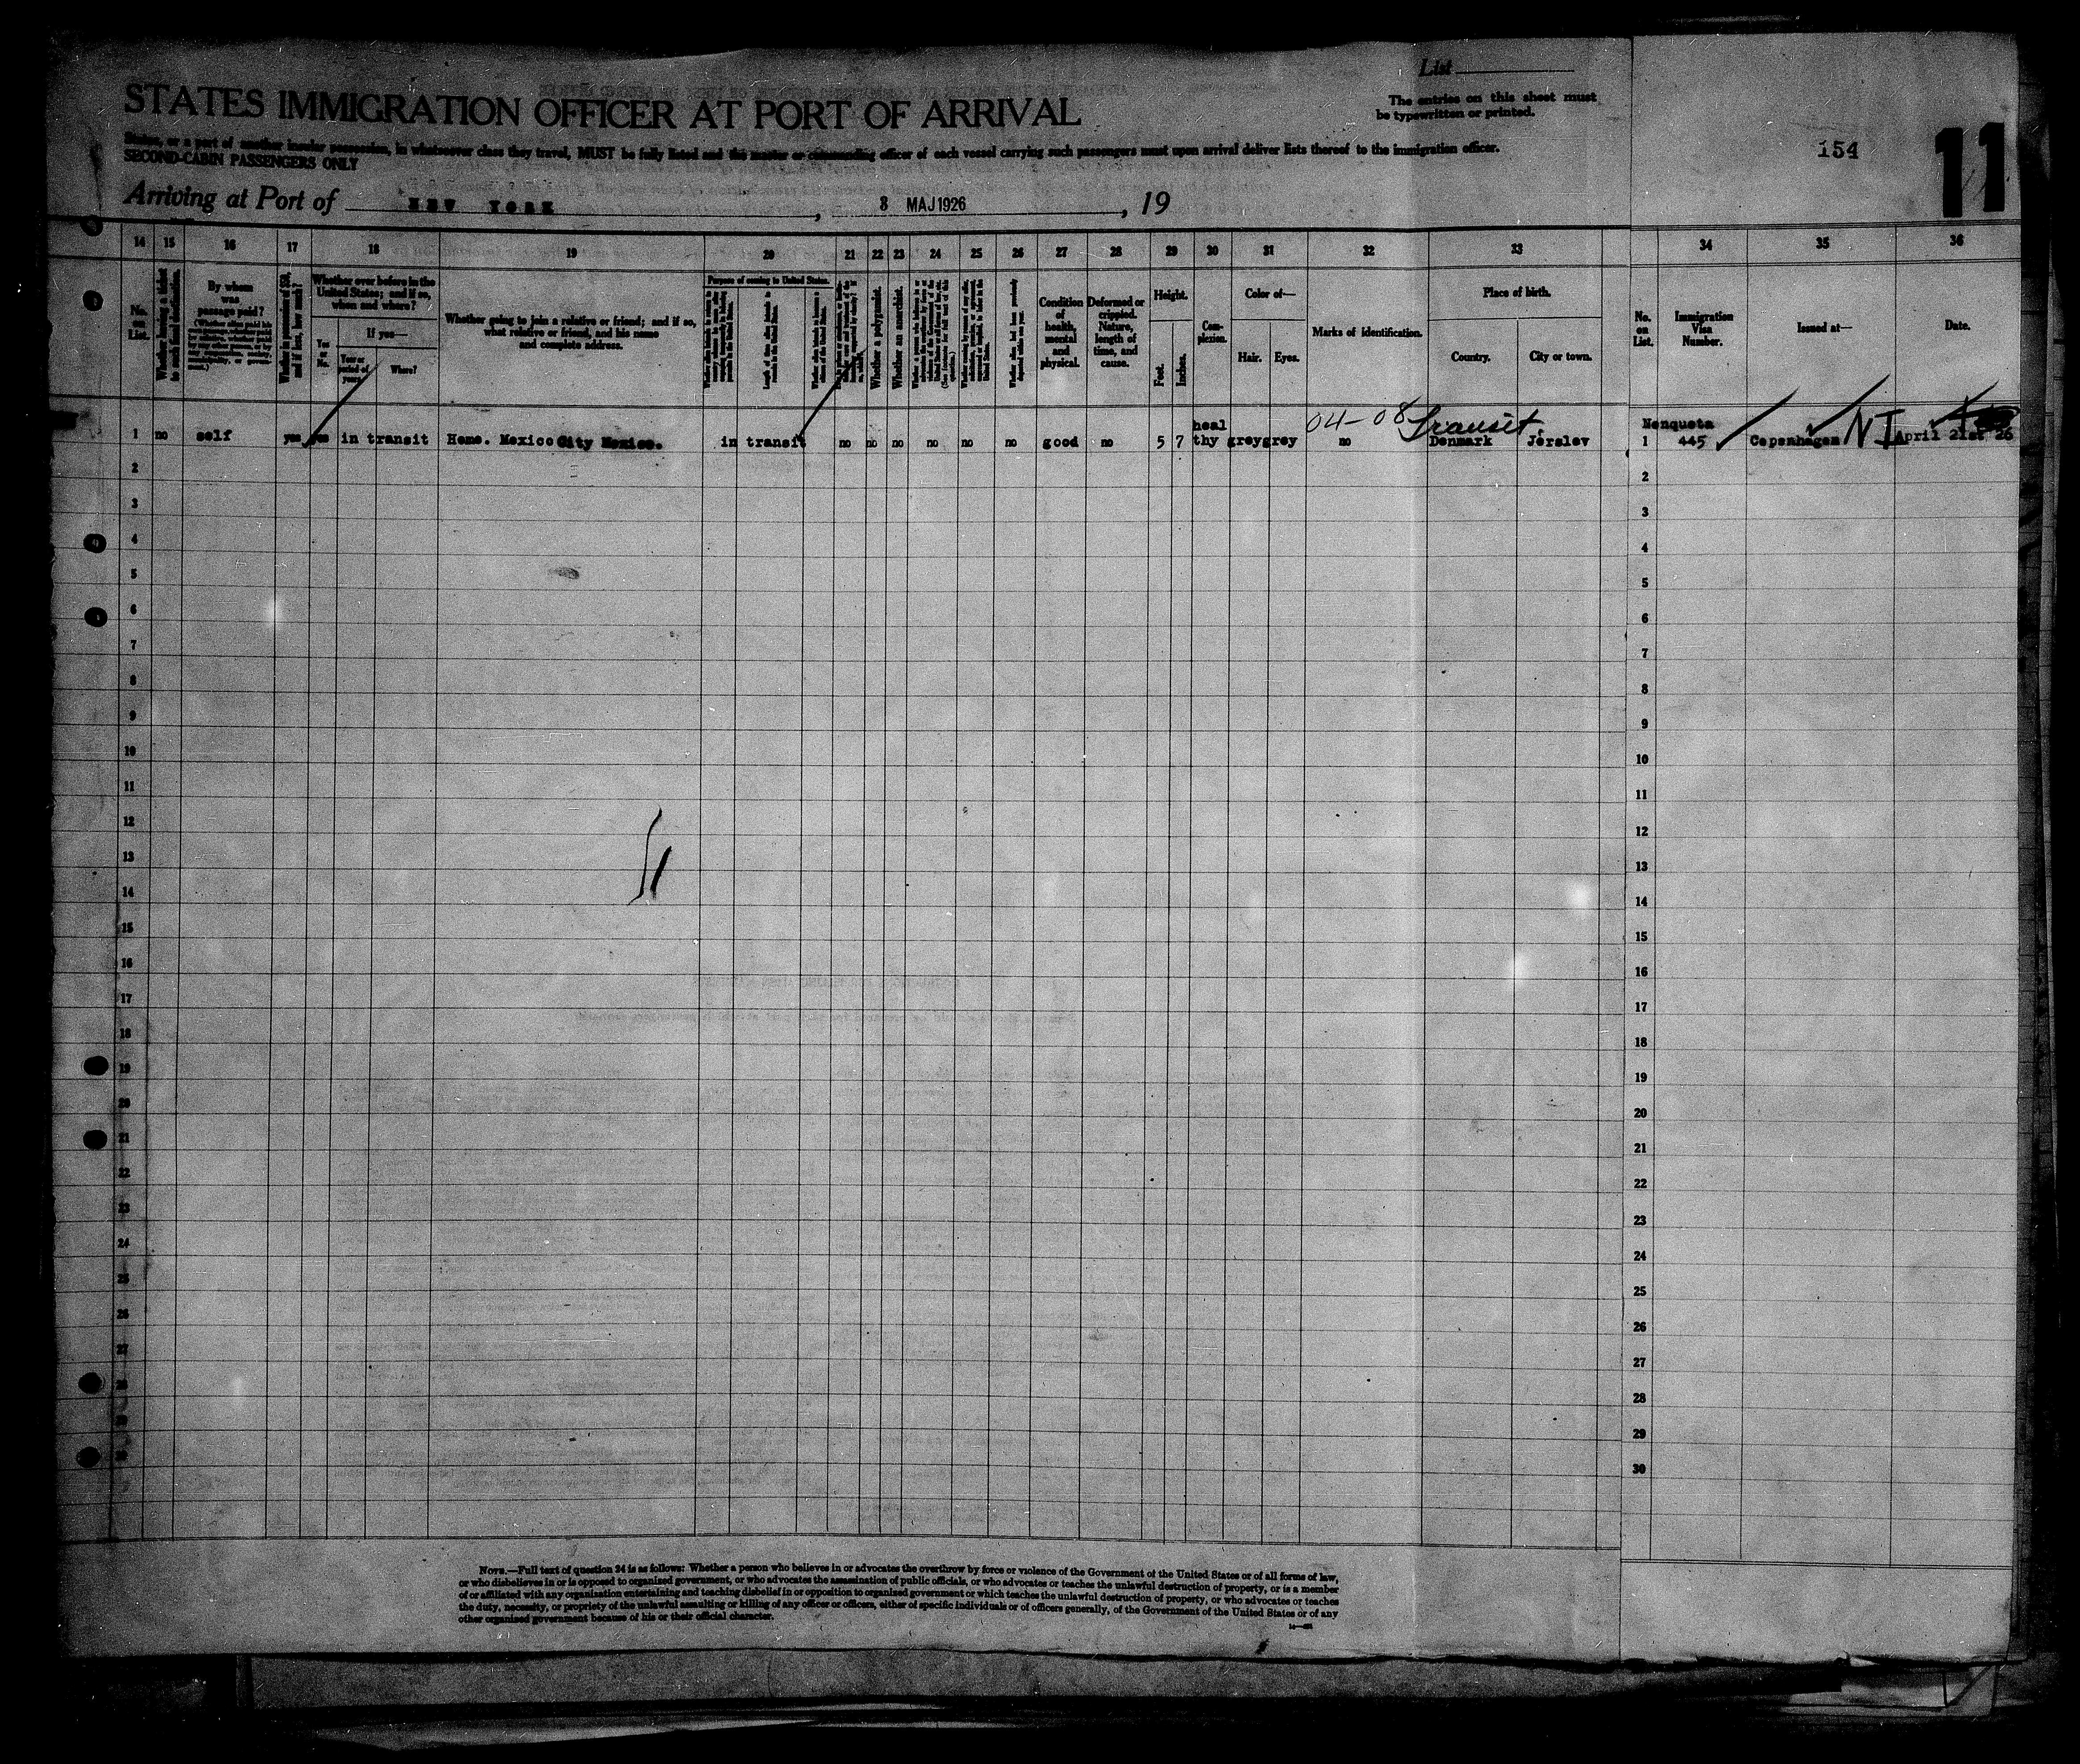 List
STATES IMMIGRATION OFFICER AT PORT OF ARRIVAL
The entries on this sheet must
be typewritten or printed.
States, or a port of another insular possession, in whatsoever class they travel, MUST be fully listed and the master or commanding officer of each vessel carrying such passengers must upon arrival deliver lists thereof to the immigration officer.
SECOND-CABIN PASSENGERS ONLY
154
11
Arriving at Port of NEW YORK , 8 MAJ 1926 , 19
14 15 16 17 18 19 20 21 22 23 24 25 26 27 28 29 30 31 32 33 34 35 36
No. on List.
Whether having a ticket to such final destination.
By whom was passage paid?
Whether in possession of $50, and if less, how much?
Whether ever before in the United States; and if so, when and where?
Yes or No.
If yes—
Year or period of years.
Where?
Whether going to join a relative or friend; and if so, what relative or friend, and his name and complete address.
Purpose of coming to United States.
Whether a polygamist.
Whether an anarchist.
Condition of health, mental and physical.
Deformed or crippled. Nature, length of time, and cause.
Height.
Feet.
Inches.
Complexion.
Color of—
Hair.
Eyes.
Marks of identification.
Place of birth.
Country.
City or town.
No. on List.
Immigration Visa Number.
Issued at—
Date.
04-08 Transit
1 no self yes yes in transit Home. Mexico City Mexico. in transit no no no no no no good no 5 7 healthy grey grey no Denmark Jerslev
Nonquota
1 445 Copenhagen NI April 21st 26
2 2
3 3
4 4
5 5
6 6
7 7
8 8
9 9
10 10
11 11
12 12
13 13
14 14
15 15
16 16
17 17
18 18
19 19
20 20
21 21
22 22
23 23
24 24
25 25
26 26
27 27
28 28
29 29
30 30
NOTE.—Full text of question 24 is as follows: Whether a person who believes in or advocates the overthrow by force or violence of the Government of the United States or of all forms of law,
or who disbelieves in or is opposed to organized government, or who advocates the assassination of public officials, or who advocates or teaches the unlawful destruction of property, or is a member
of or affiliated with any organization entertaining and teaching disbelief in or opposition to organized government or which teaches the unlawful destruction of property, or who advocates or teaches
the duty, necessity, or propriety of the unlawful assaulting or killing of any officer or officers, either of specific individuals or of officers generally, of the Government of the United States or of any
other organized government because of his or their official character.